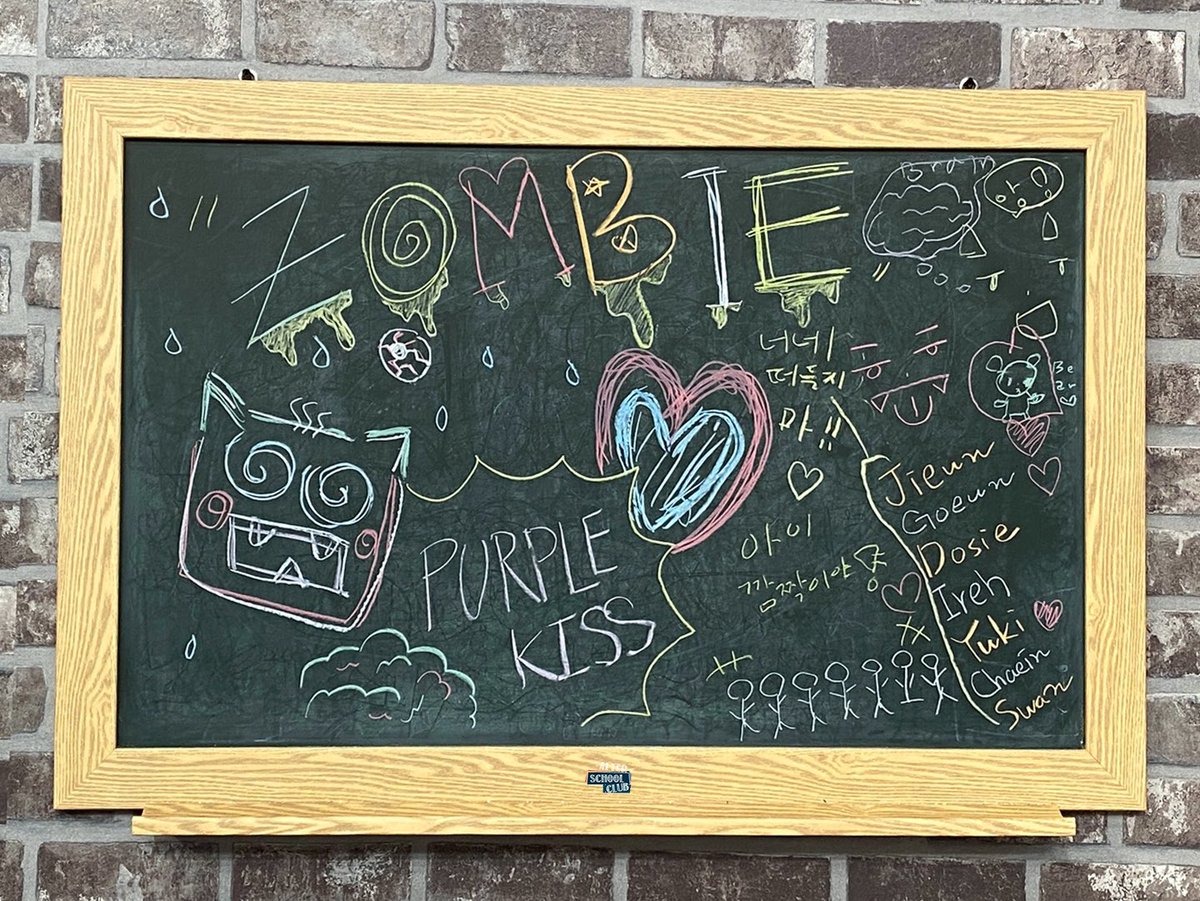 ZOMBIE
Brain
너네
떠들지
마!!
Bear
Jieun
Goeun
Dosie
Ireh
Yuki
Chaein
Swan
아이
깜짝이야
PURPLE
KISS
AFTER
SCHOOL
CLUB